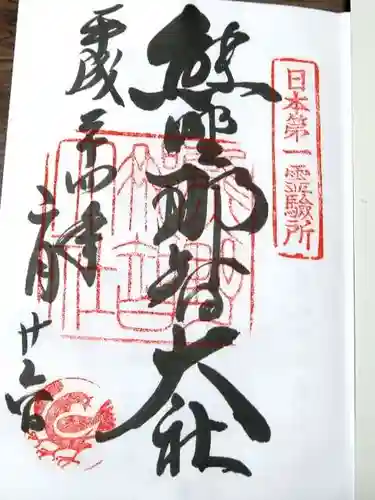 日本第一霊験所
熊野那智大社
平成二十四年
六月廿六日